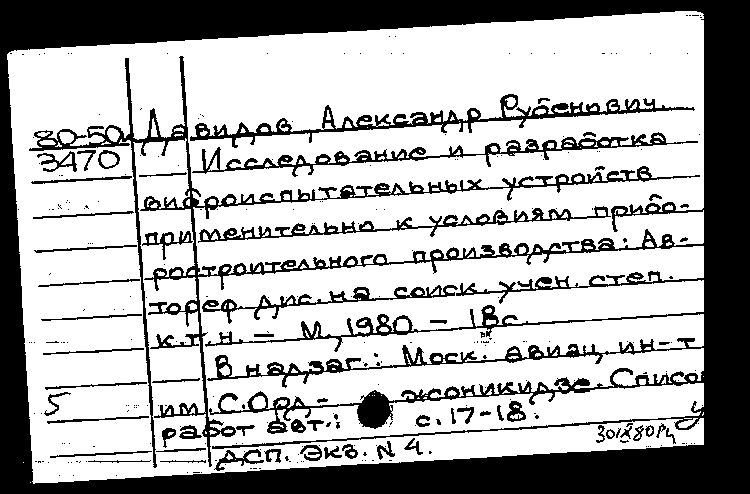 80-50к Давидов, Александр Рубенович.
3470 Исследование и разработка
виброиспытательных устройств
применительно к условиям прибо-
ростроительного производства: Ав-
тореф дис. на соиск. учен. степ.
к.т.н. – М, 1980. – 18с.
В надзаг.: Моск. авиац. ин-т
5 им. С. Орд- жоникидзе. Списо
работ авт.: с. 17-18.
ДСП. Экз. N 4.